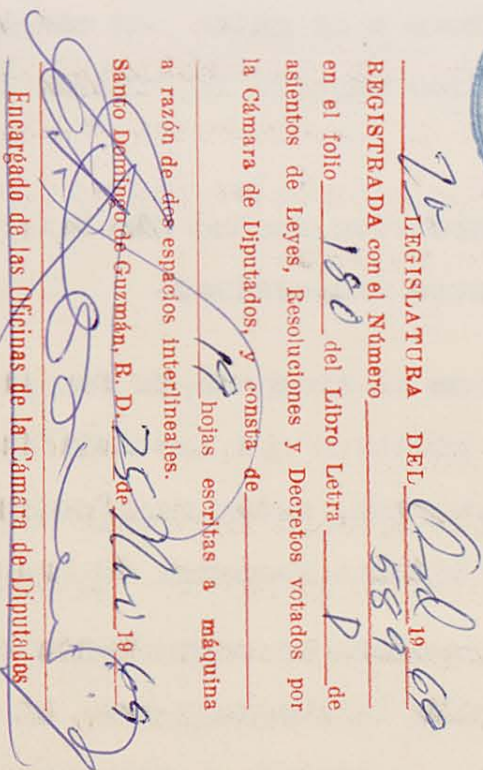 LEGISLATURA DEL Ord 1969
REGISTRADA con el Número 589
en el folio 180 del Libro Letra D de
asientos de Leyes, Resoluciones y Decretos votados por
la Cámara de Diputados, y consta de
19 hojas escritas a máquina
a razón de dos espacios interlineales.
Santo Domingo de Guzmán, R. D. 25 de 1969
Encargado de las Oficinas de la Cámara de Diputados